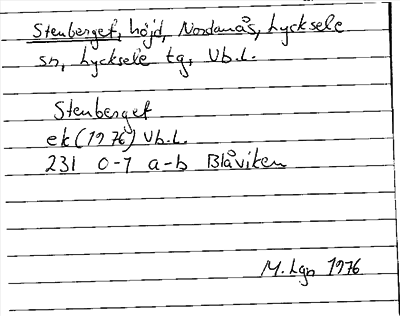 Stenberget, höjd, Nordanås, Lycksele
sn, Lycksele tg, Vb.l.
Stenberget
ek (1976) Vb.l.
231 0-7 a-b Blåviken
M. Lgn 1976